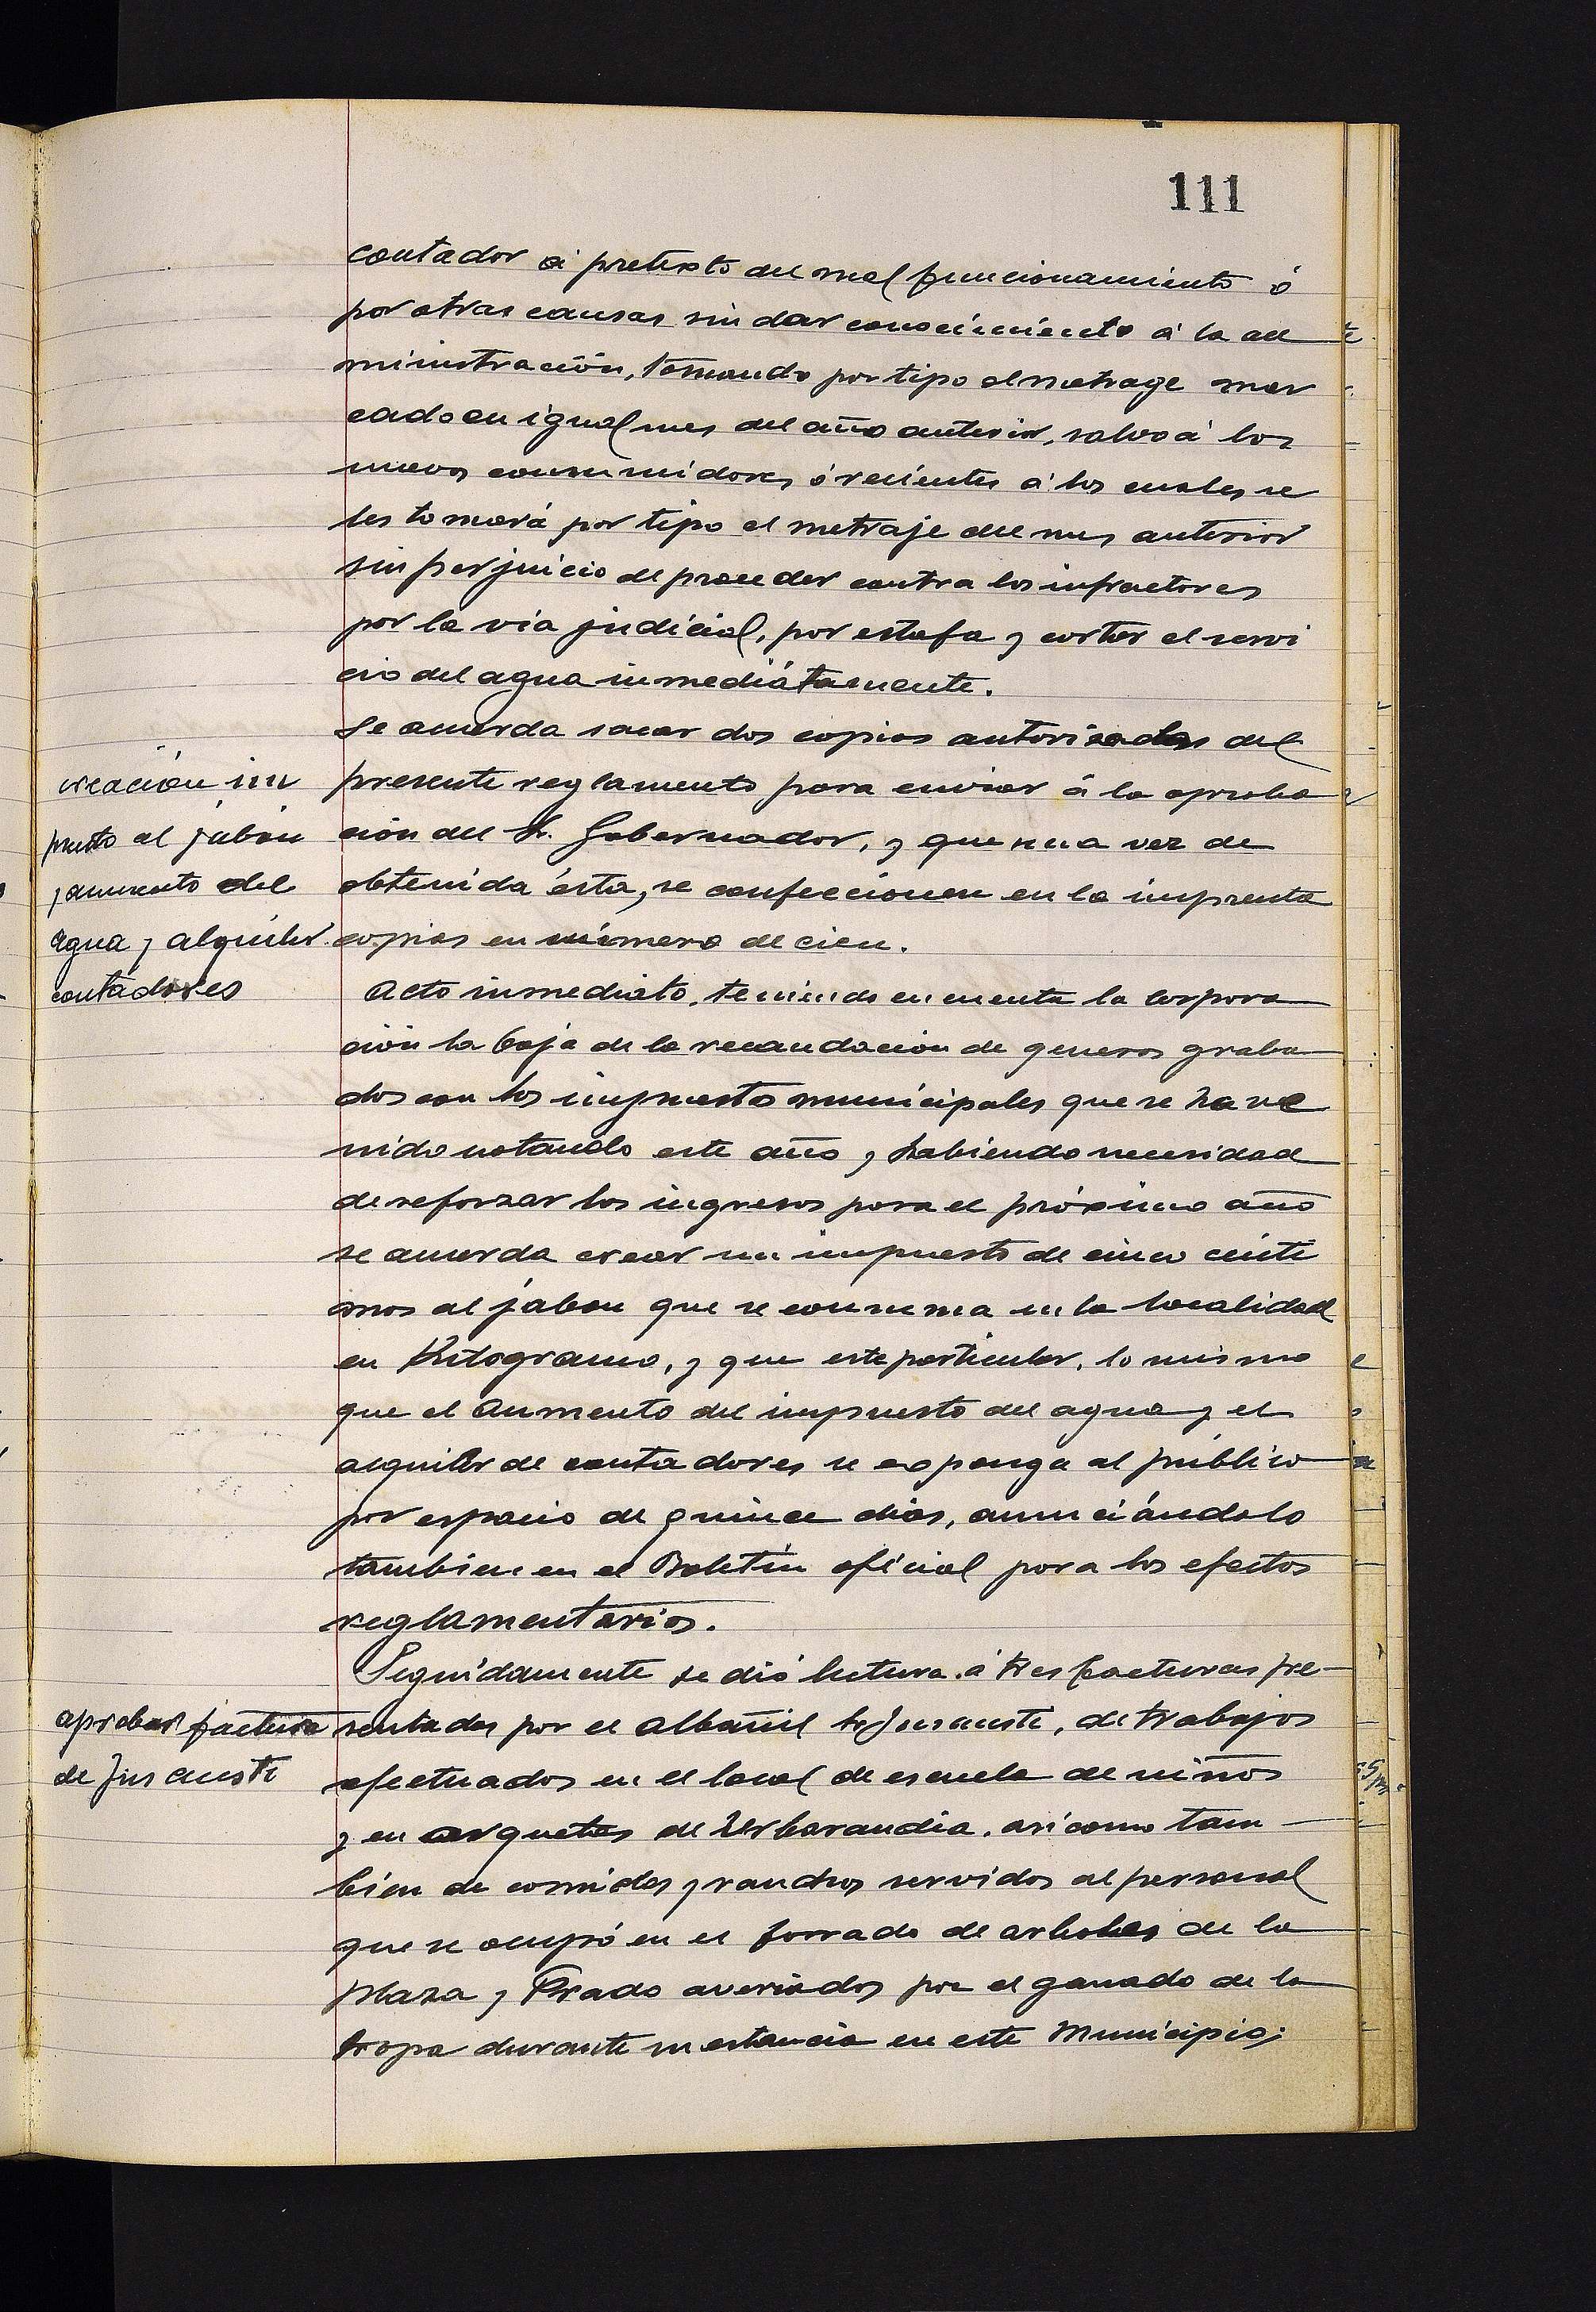 111
contador á pretexto del mal funcionamiento ó
por otras causas sin dar conocimiento á la ad
ministración, tomando por tipo el metrage mar
cado en igual mes del año anterior, salvo á los
nuevos consumidores ó recientes á los cuales se
les tomará por tipo el metraje del mes anterior
sin perjuicio de proceder contra los infractores
por la via judicial, por estafa y cortar el servi
cio del agua inmediátamente.
Se acuerda sacar dos copias autorizadas del
presente reglamento para enviar á la aproba
ción del Sr. Gobernador, y que una vez de
obtenida ésta, se confeccionen en la imprenta
copias en número de cien.
creación im
puesto al jabón
y aumento del
agua y alquiler
contadores
Acto inmediato, teniendo en cuenta la Corpora
ción la baja de la recaudacion de generos graba
dos con los impuestos municipales que se ha ve
nido notando este año y habiendo necesidad
de reforzar los ingresos para el próximo año
se acuerda crear un impuesto de cinco cénti
mos al jabon que se consuma en la localidad
en Kilogramo, y que este particular, lo mismo
que el aumento del impuesto del agua y el
alquiler de contadores se exponga al público
por espacio de quince dias, anunciándolo
tambien en el Boletín oficial para los efectos
reglamentarios.
Seguidamente se dió lectura á tres facturas pre-
aprobar factura
de Jusausti
sentadas por el albañil Sr Jusausti, de trabajos
efectuados en el local de escuela de niños
y en arquetas de Urbarandia, asi como tam
bien de comidas y ranchos servidos al personal
que se ocupó en el forrado de arboles de la
plaza y Prado averiados por el ganado de la
tropa durante su estancia en este Municipio;